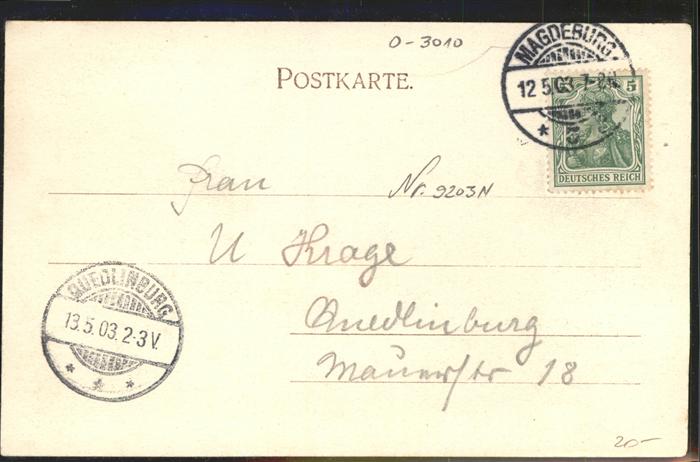 0-3010
MAGDEBURG
12 5.03 7-8N.
5
DEUTSCHES REICH
POSTKARTE.
Frau
Nr. 9203N
U Krage
Quedlinburg
Mauerstr 18
QUEDLINBURG
13.5.03.2-3V.
20-